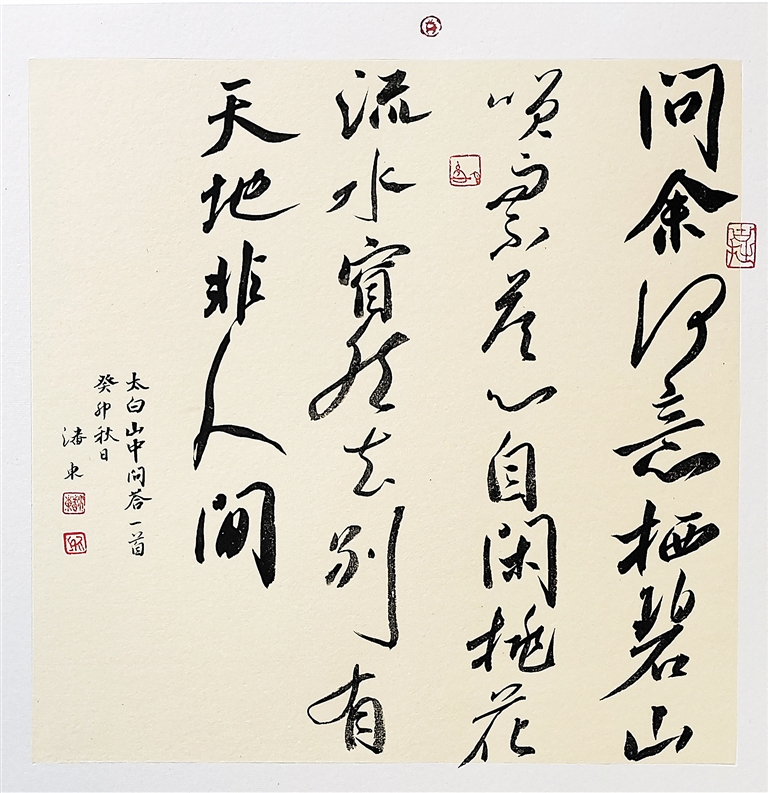 问余何意栖碧山
咲而不答心自闲桃花
流水窅然去别有
天地非人间
太白山中问答一首
癸卯秋日
潘東